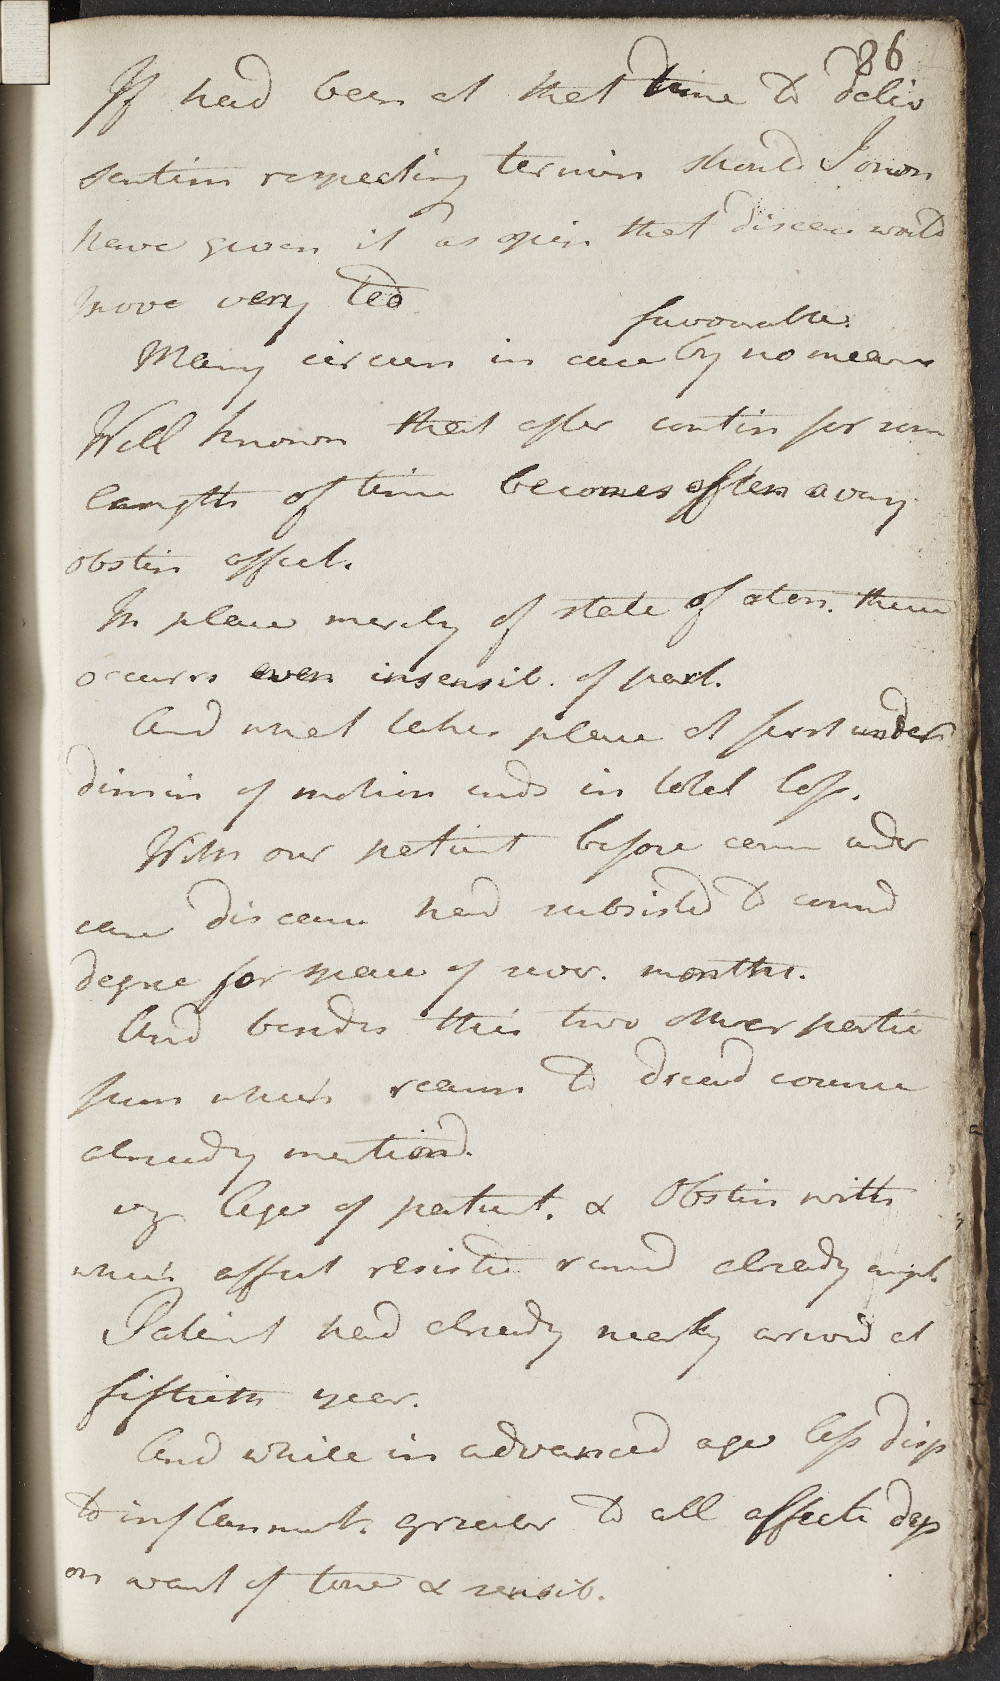 86
If had been at that time to deliv
sentim respecting termin should I own
have given it as opin that disease would
prove very ted
favourable.
Many circum in case by no means
Well known that after contin for som
length of time becomes often a very
obstin affect.
In place merely of state of aton. there
occurrs even insensib. of part.
And what takes place at first under
dimin of motion ends in total loss.
With our patient before came under
care disease had subsisted to consid
degree for space of sever. months.
And besides this two other partic
from which reason to dread concern
already mentiond.
viz Age of patient. & Obstin with
which affect resisted remed already empl.
Patient had already nearly arrivd at
fiftieth year.
And while in advanced age less disp
to inflammat. greater to all affects dep
on want of tone & sensib.